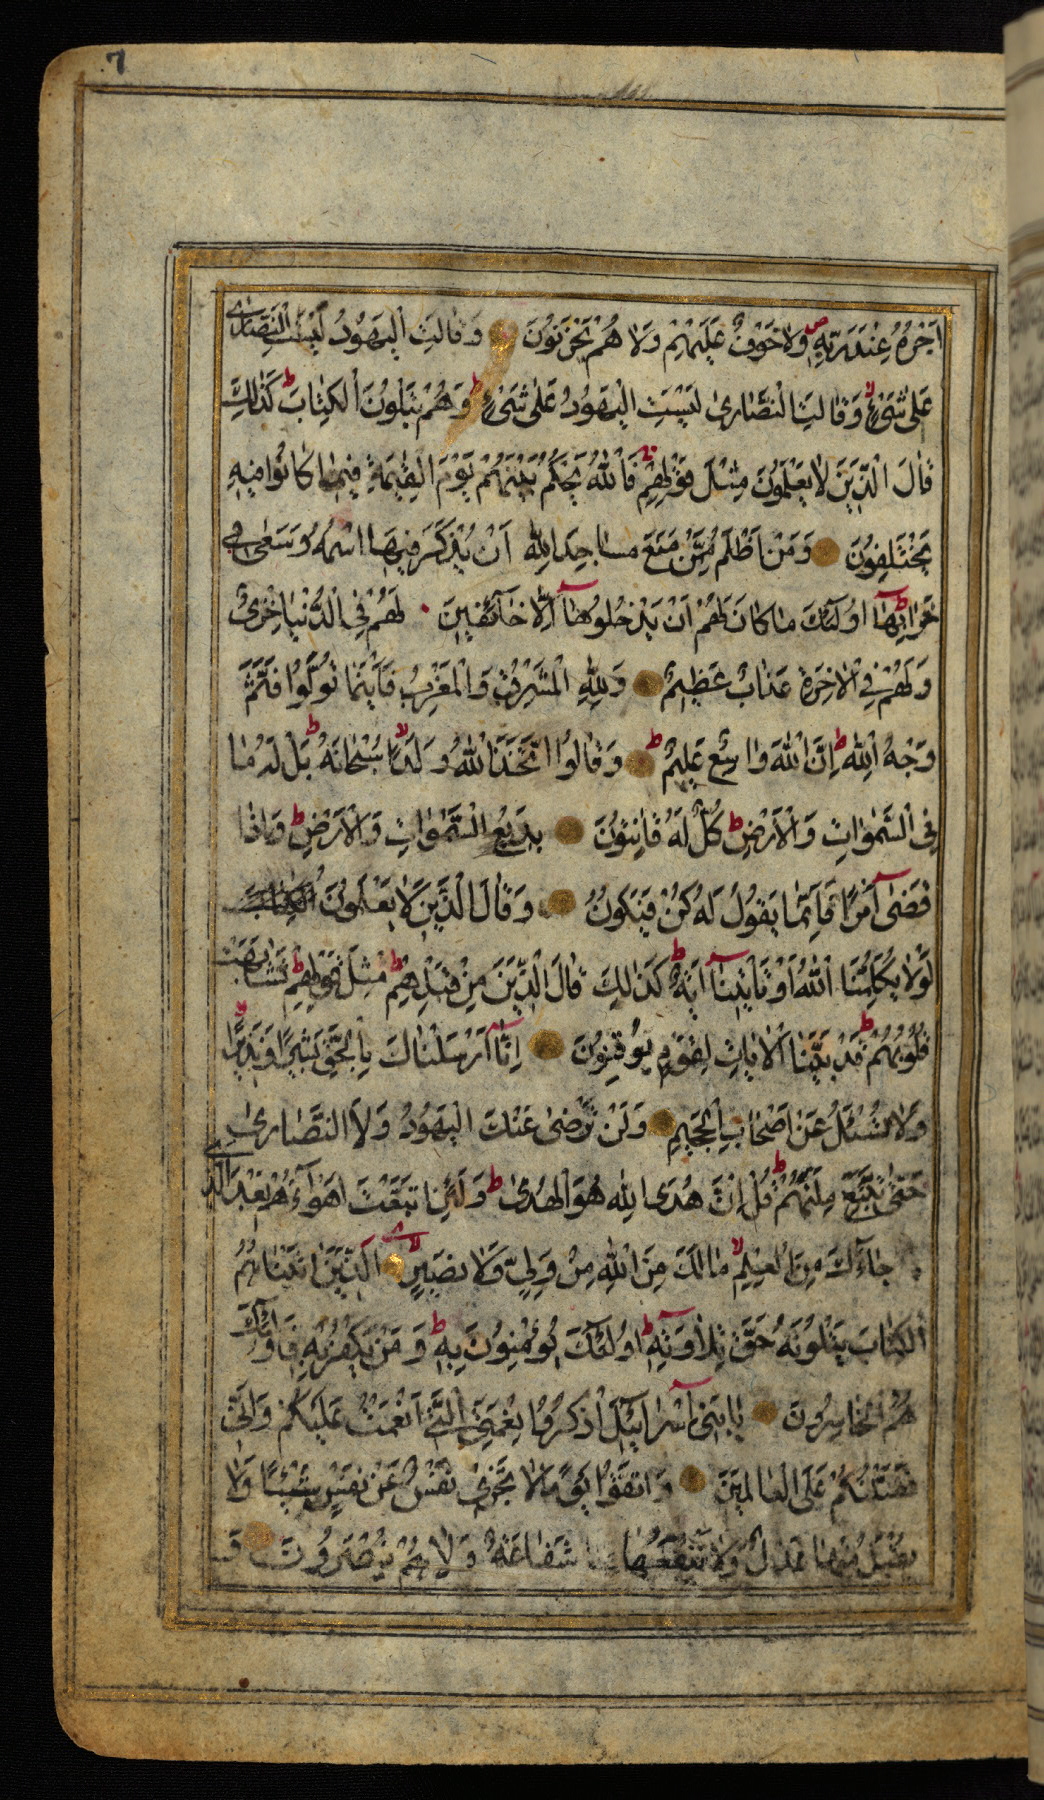 7
اَجْرُهُ عِنْدَ رَبِّهٖ ص وَلَا خَوْفٌ عَلَيْهِمْ وَلَا هُمْ يَحْزَنُونَ وَقَالَتِ الْيَهُودُ لَيْسَتِ النَّصَارٰى
عَلٰى شَىْءٍ لا وَقَالَتِ النَّصَارٰى لَيْسَتِ الْيَهُودُ عَلٰى شَىْءٍ ط وَهُمْ يَتْلُونَ الْكِتَابَ ط كَذٰلِكَ
قَالَ الَّذِينَ لَا يَعْلَمُونَ مِثْلَ قَوْلِهِمْ ج فَاللّٰهُ يَحْكُمُ بَيْنَهُمْ يَوْمَ الْقِيٰمَةِ فِيمَا كَانُوا فِيهِ
يَخْتَلِفُونَ وَمَنْ اَظْلَمُ مِمَّنْ مَنَعَ مَسَاجِدَ اللّٰهِ اَنْ يُذْكَرَ فِيهَا اسْمُهُ وَسَعٰى فِى
خَرَابِهَا ط اُولٰئِكَ مَا كَانَ لَهُمْ اَنْ يَدْخُلُوهَآ اِلَّا خَآئِفِينَ لَهُمْ فِى الدُّنْيَا خِزْىٌ
وَلَهُمْ فِى الْاٰخِرَةِ عَذَابٌ عَظِيمٌ وَلِلّٰهِ الْمَشْرِقُ وَالْمَغْرِبُ فَاَيْنَمَا تُوَلُّوا فَثَمَّ
وَجْهُ اللّٰهِ ط اِنَّ اللّٰهَ وَاسِعٌ عَلِيمٌ ط وَقَالُوا اتَّخَذَ اللّٰهُ وَلَدًا لا سُبْحَانَهُ ط بَلْ لَهُ مَا
فِى السَّمٰوَاتِ وَالْاَرْضِ ط كُلٌّ لَهُ قَانِتُونَ بَدِيعُ السَّمٰوَاتِ وَالْاَرْضِ ط وَاِذَا
قَضٰٓى اَمْرًا فَاِنَّمَا يَقُولُ لَهُ كُنْ فَيَكُونُ وَقَالَ الَّذِينَ لَا يَعْلَمُونَ
لَوْلَا يُكَلِّمُنَا اللّٰهُ اَوْ تَأْتِينَآ اٰيَةٌ ط كَذٰلِكَ قَالَ الَّذِينَ مِنْ قَبْلِهِمْ ط مِثْلَ قَوْلِهِمْ ط تَشَابَهَتْ
قُلُوبُهُمْ ط قَدْ بَيَّنَّا الْاٰيَاتِ لِقَوْمٍ يُوقِنُونَ اِنَّآ اَرْسَلْنَاكَ بِالْحَقِّ بَشِيرًا وَنَذِيرًا لا
وَلَا تُسْئَلُ عَنْ اَصْحَابِ الْجَحِيمِ وَلَنْ تَرْضٰى عَنْكَ الْيَهُودُ وَلَا النَّصَارٰى
حَتّٰى تَتَّبِعَ مِلَّتَهُمْ ط قُلْ اِنَّ هُدَى اللّٰهِ هُوَ الْهُدٰى ط وَلَئِنِ اتَّبَعْتَ اَهْوَآءَهُمْ بَعْدَ الَّذِى
جَآءَكَ مِنَ الْعِلْمِ لا مَا لَكَ مِنَ اللّٰهِ مِنْ وَلِىٍّ وَلَا نَصِيرٍ لا اَلَّذِينَ اٰتَيْنَاهُمُ
الْكِتَابَ يَتْلُونَهُ حَقَّ تِلَاوَتِهٖ ط اُولٰئِكَ يُؤْمِنُونَ بِهٖ ط وَمَنْ يَكْفُرْ بِهٖ فَاُولٰئِكَ
هُمُ الْخَاسِرُونَ يَا بَنِىٓ اِسْرَائِيلَ اذْكُرُوا نِعْمَتِىَ الَّتِىٓ اَنْعَمْتُ عَلَيْكُمْ وَاَنِّى
فَضَّلْتُكُمْ عَلَى الْعَالَمِينَ وَاتَّقُوا يَوْمًا لَا تَجْزِى نَفْسٌ عَنْ نَفْسٍ شَيْئًا وَلَا
يُقْبَلُ مِنْهَا عَدْلٌ وَلَا تَنْفَعُهَا شَفَاعَةٌ وَلَا هُمْ يُنْصَرُونَ